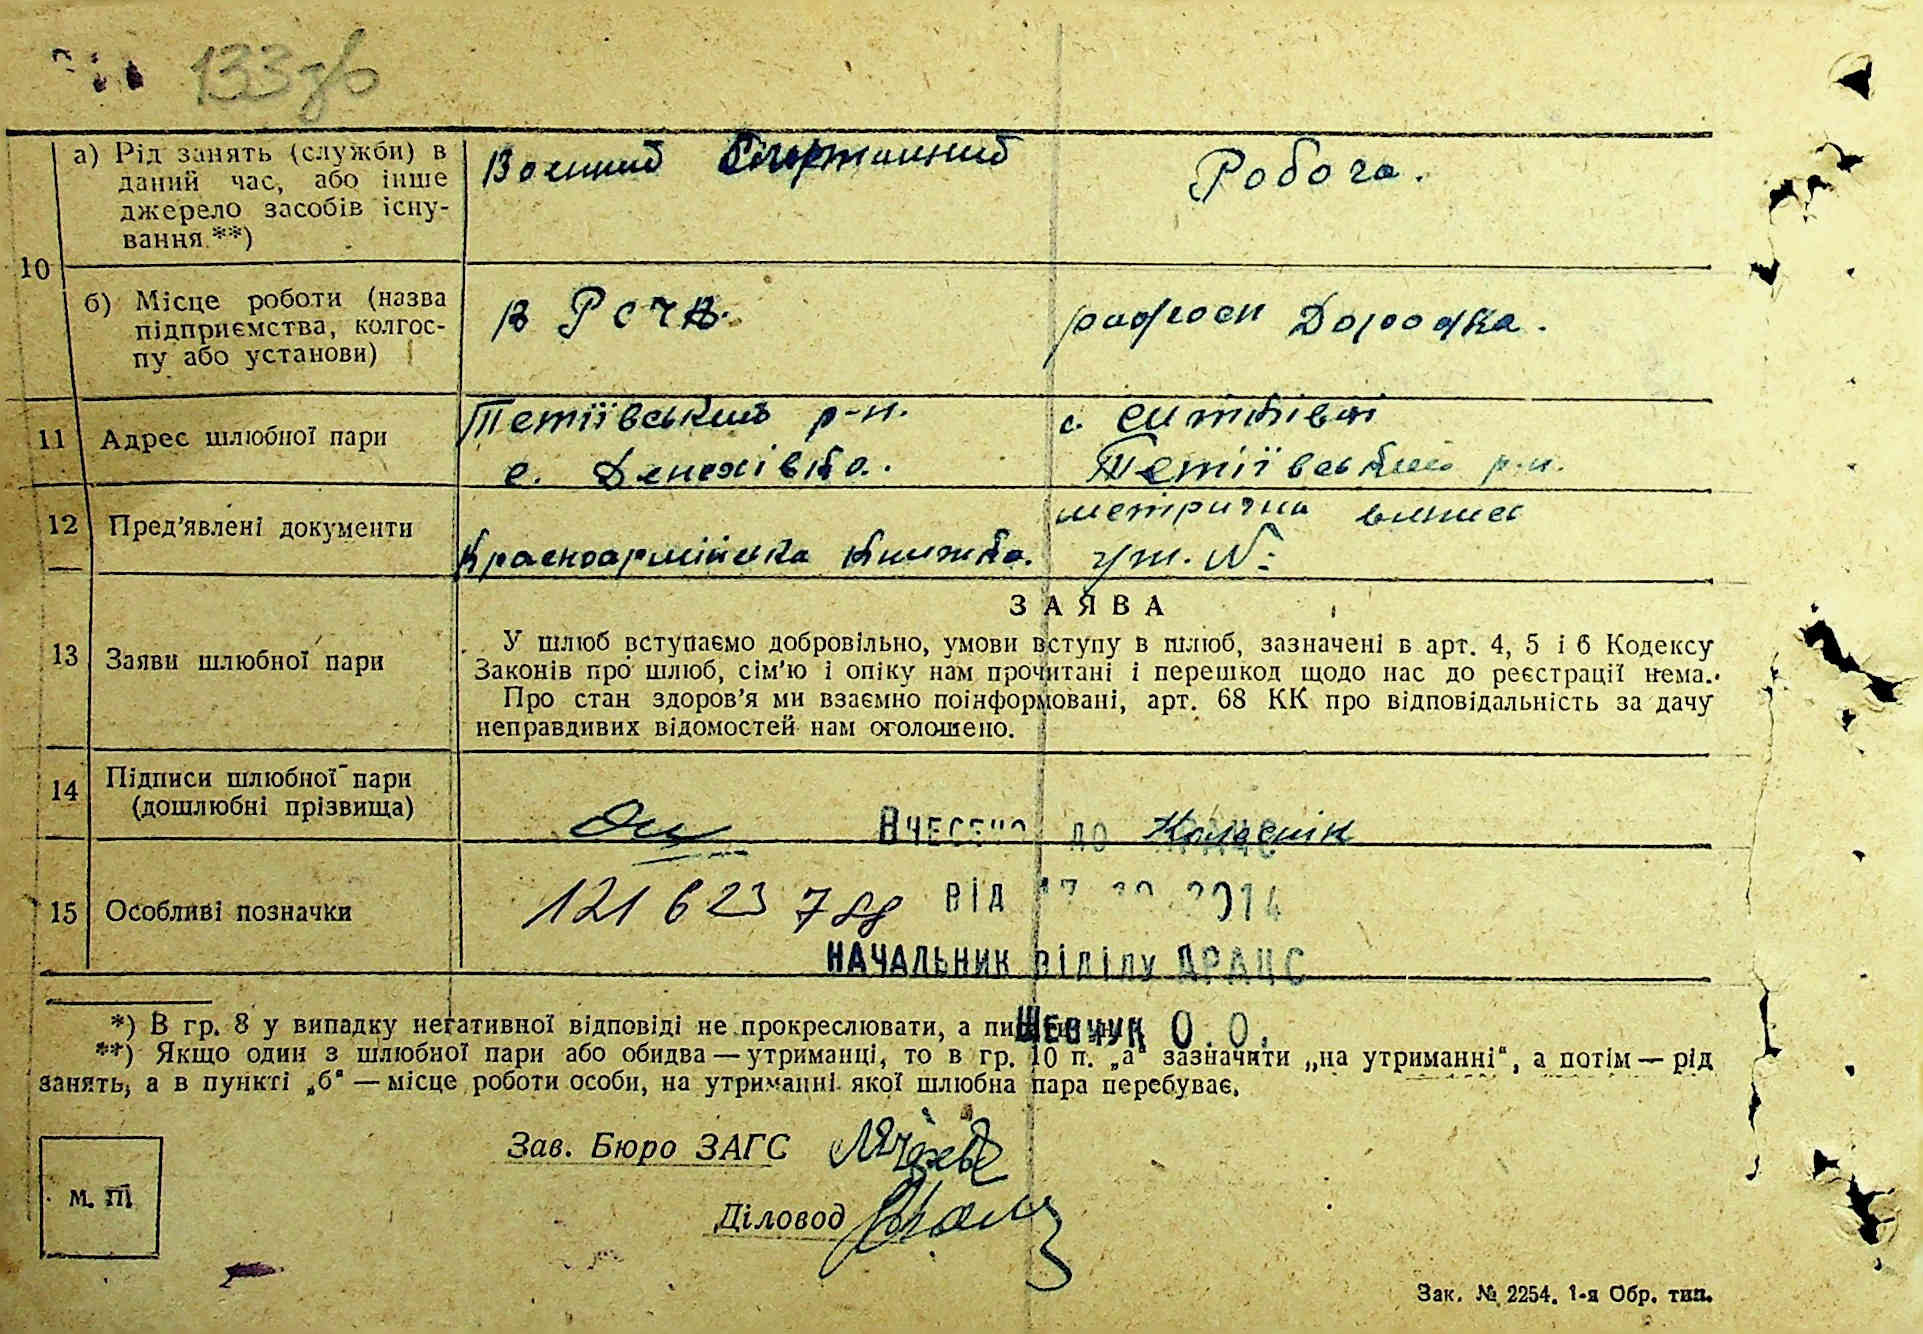 133 зв
10
а) Рід занять (служби) в
даний час, або інше
джерело засобів існу-
вання.**)
Военний
Робоча.
б) Місце роботи (назва
підприємства, колгос-
пу або установи)
в РСЧА.
11 Адрес шлюбної пари
Тетіївський р-н.
с. Денехівка.
с.
Тетіївський р-н.
12 Пред'явлені документи
Красноармійська книжка.
метрична випись
13 Заяви шлюбної пари
ЗАЯВА
У шлюб вступаємо добровільно, умови вступу в шлюб, зазначені в арт. 4, 5 і 6 Кодексу
Законів про шлюб, сім'ю і опіку нам прочитані і перешкод щодо нас до реєстрації нема.
Про стан здоров'я ми взаємно поінформовані, арт. 68 КК про відповідальність за дачу
неправдивих відомостей нам оголошено.
14 Підписи шлюбної пари
(дошлюбні прізвища)
Колеснік
ВНЕСЕНО ДО ДРАЦС
15 Особливі позначки
121 623 7
ВІД 2014
НАЧАЛЬНИК ВІДІЛУ ДРАЦС
ШЕВЧУК О. О.
*) В гр. 8 у випадку негативної відповіді не прокреслювати, а
**) Якщо один з шлюбної пари або обидва — утриманці, то в гр. 10 п. „а" зазначити „на утриманні", а потім — рід
занять, а в пункті „б" — місце роботи особи, на утриманні якої шлюбна пара перебуває.
Зав. Бюро ЗАГС
Діловод
М. П.
Зак. № 2254. 1-я Обр. тип.